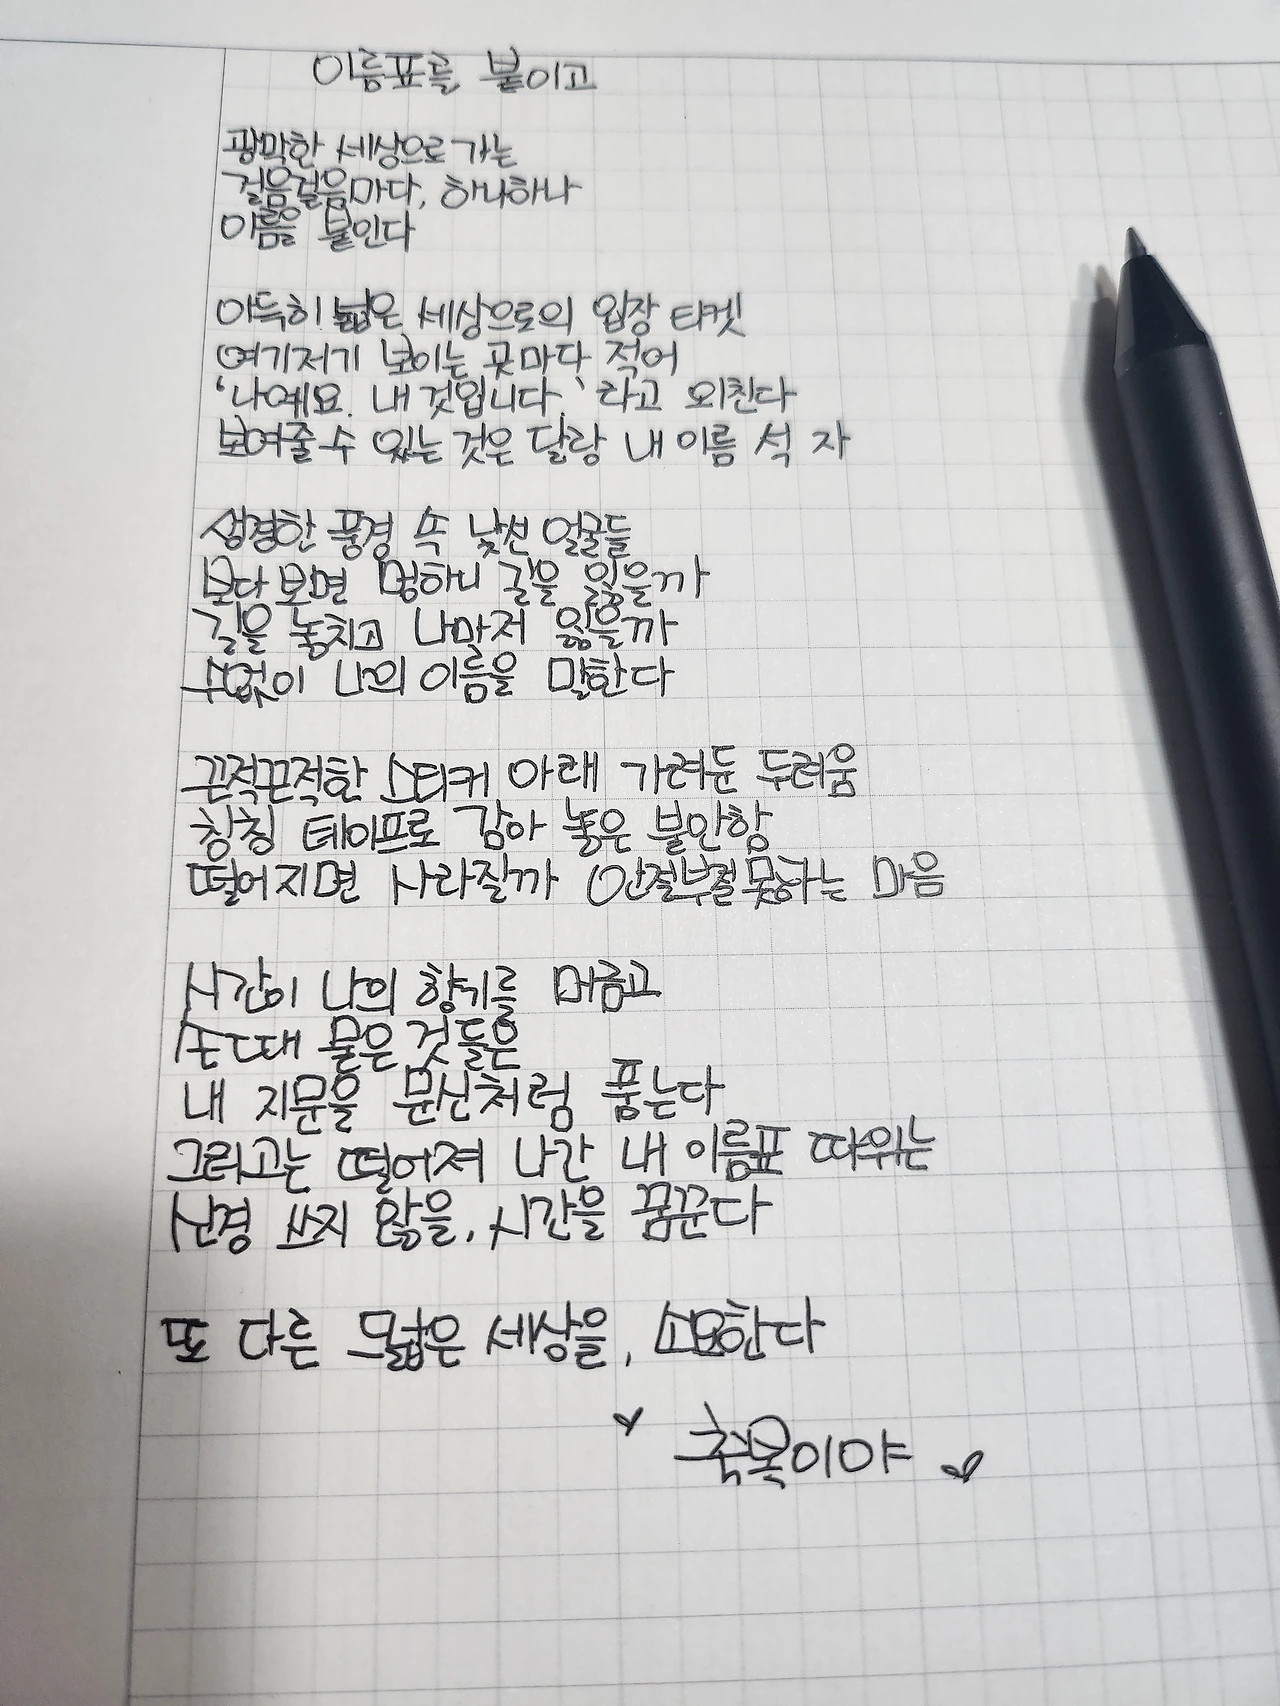 이름표를 붙이고
광막한 세상으로 가는
걸음걸음마다, 하나하나
이름을 붙인다
아득히 넓은 세상으로의 입장 티켓
여기저기 보이는 곳마다 적어
'나예요. 내 것입니다.'라고 외친다
보여줄 수 있는 것은 달랑 내 이름 석 자
생경한 풍경 속 낯선 얼굴들
보다 보면 멍하니 길을 잃을까
길을 놓치고 나마저 잃을까
수없이 나의 이름을 말한다
끈적끈적한 스티커 아래 가려둔 두려움
칭칭 테이프로 감아 놓은 불안함
떨어지면 사라질까 안절부절못하는 마음
시간이 나의 향기를 머금고
손때 묻은 것들은
내 지문을 문신처럼 품는다
그리고는 떨어져 나간 내 이름표 따위는
신경 쓰지 않을, 시간을 꿈꾼다
또 다른 드넓은 세상을, 소요한다
이야